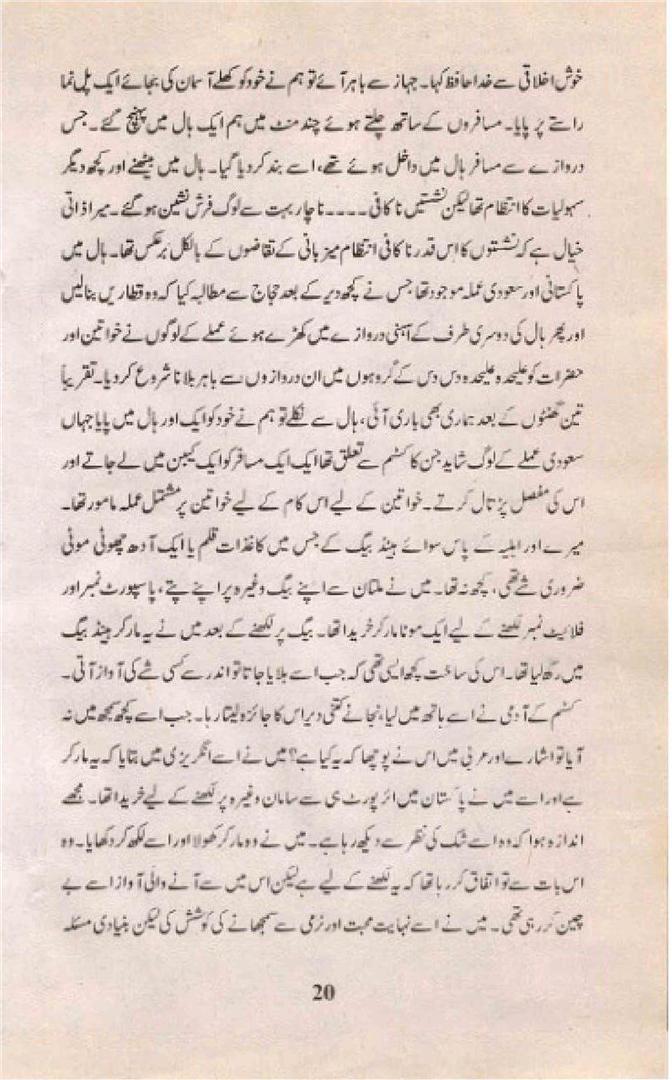 خوش اخلاقی سے خدا حافظ کہا۔ جہاز سے باہر آئے تو ہم نے خود کو کھلے آسمان کی بجائے ایک پل نما
راستے پر پایا۔ مسافروں کے ساتھ چلتے ہوئے چند منٹ میں ہم ایک ہال میں پہنچ گئے۔ جس
دروازے سے مسافر ہال میں داخل ہوئے تھے، اسے بند کر دیا گیا۔ ہال میں بیٹھنے اور کچھ دیگر
سہولیات کا انتظام تھا لیکن نشستیں ناکافی ۔۔۔۔ ناچار بہت سے لوگ فرش نشین ہو گئے۔ میرا ذاتی
خیال ہے کہ نشستوں کا اس قدر ناکافی انتظام میزبانی کے تقاضوں کے بالکل برعکس تھا۔ ہال میں
پاکستانی اور سعودی عملہ موجود تھا جس نے کچھ دیر کے بعد حجاج سے مطالبہ کیا کہ وہ قطاریں بنالیں
اور پھر ہال کی دوسری طرف کے آہنی دروازے میں کھڑے ہوئے عملے کے لوگوں نے خواتین اور
حضرات کو علیحدہ علیحدہ دس دس کے گروہوں میں ان دروازوں سے باہر بلانا شروع کر دیا۔ تقریباً
تین گھنٹوں کے بعد ہماری بھی باری آئی، ہال سے نکلے تو ہم نے خود کو ایک اور ہال میں پایا جہاں
سعودی عملے کے لوگ شاید جن کا کسٹم سے تعلق تھا ایک ایک مسافر کو ایک کیبن میں لے جاتے اور
اس کی مفصل پڑتال کرتے۔ خواتین کے لیے اس کام کے لیے خواتین پر مشتمل عملہ مامور تھا۔
میرے اور اہلیہ کے پاس سوائے ہینڈ بیگ کے جس میں کاغذات قلم یا ایک آدھ چھوٹی موٹی
ضروری شے تھی، کچھ نہ تھا۔ میں نے ملتان سے اپنے بیگ وغیرہ پر اپنے پتے، پاسپورٹ نمبر اور
فلائیٹ نمبر لکھنے کے لیے ایک موٹا مارکر خریدا تھا۔ بیگ پر لکھنے کے بعد میں نے یہ مارکر ہینڈ بیگ
میں رکھ لیا تھا۔ اس کی ساخت کچھ ایسی تھی کہ جب اسے ہلایا جاتا تو اندر سے کسی شے کی آواز آتی۔
کسٹم کے آدمی نے اسے ہاتھ میں لیا، نجانے کتنی دیر اس کا جائزہ لیتا رہا۔ جب اسے کچھ سمجھ میں نہ
آیا تو اشارے اور عربی میں اس نے پوچھا کہ یہ کیا ہے؟ میں نے اسے انگریزی میں بتایا کہ یہ مارکر
ہے اور اسے میں نے پاکستان میں ائرپورٹ ہی سے سامان وغیرہ پر لکھنے کے لیے خریدا تھا۔ مجھے
اندازہ ہوا کہ وہ اسے شک کی نظر سے دیکھ رہا ہے۔ میں نے وہ مارکر کھولا اور اسے لکھ کر دکھایا۔ وہ
اس بات سے تو اتفاق کر رہا تھا کہ یہ لکھنے کے لیے ہے لیکن اس میں سے آنے والی آواز اسے بے
چین کر رہی تھی۔ میں نے اسے نہایت محبت اور نرمی سے سمجھانے کی کوشش کی لیکن بنیادی مسئلہ
20